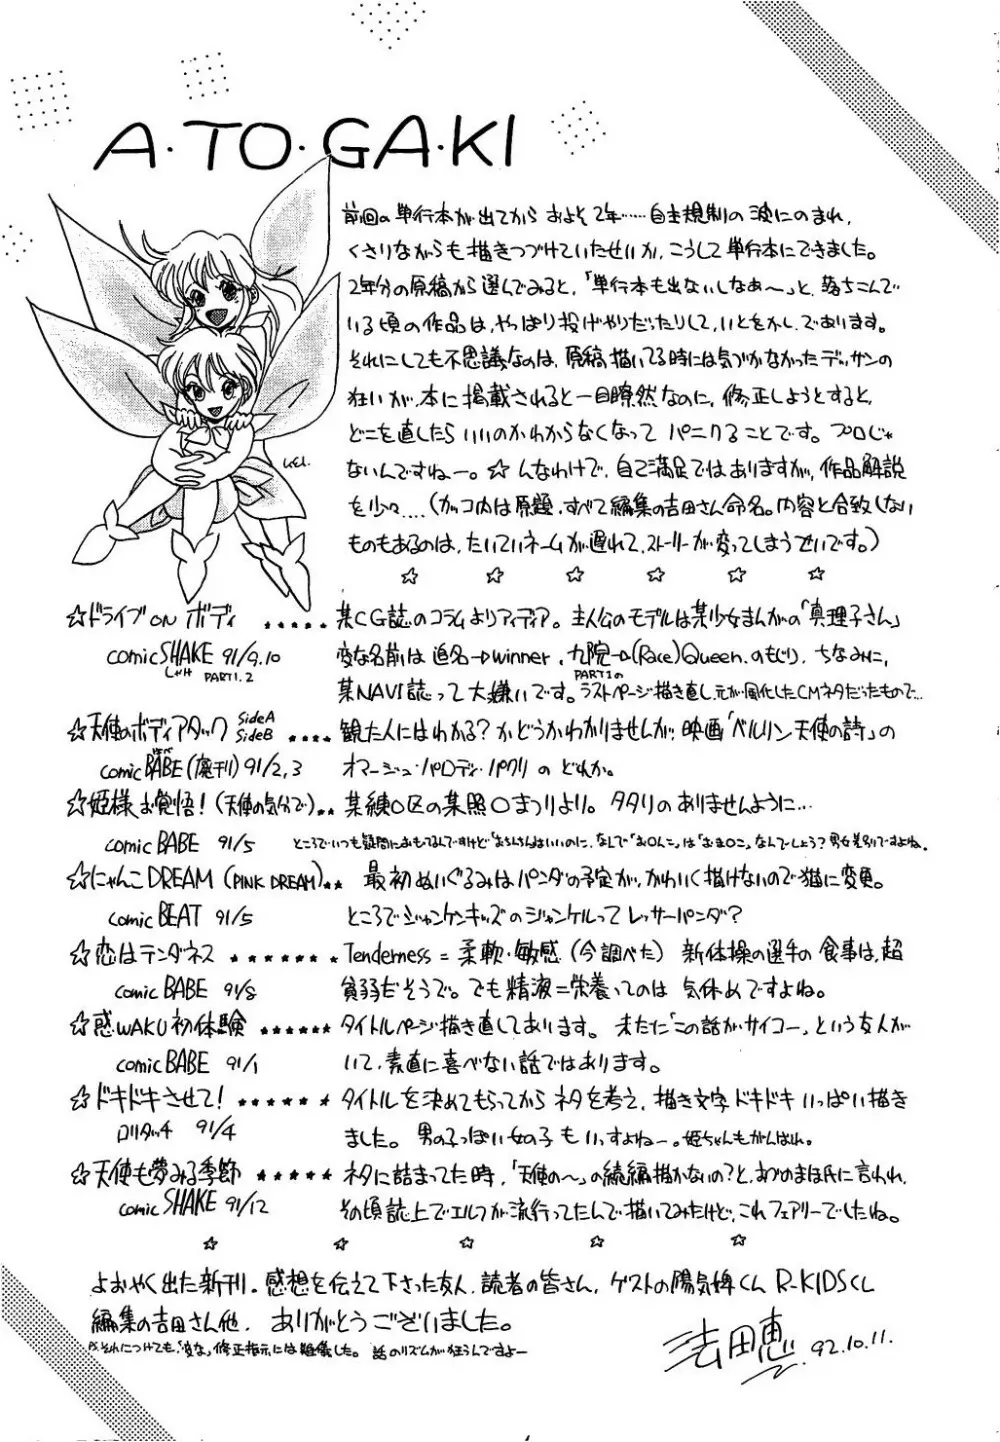 A・TO・GA・KI
前回の単行本が出てからおよそ2年……自主規制の波にのまれ、
くさりながらも描きつづけていたせいか、こうして単行本にできました。
2年分の原稿から選んでみると、「単行本も出ないしなあ〜」と、落ちこんで
いる頃の作品は、やっぱり投げやりだったりして、いとをかし、であります。
それにしても不思議なのは、原稿描いてる時には気づかなかったデッサンの
狂いが、本に掲載されると一目瞭然なのに、修正しようとすると、
どこを直したらいいのかわからなくなってパニクることです。プロじゃ
ないんですねー。☆んなわけで、自己満足ではありますが、作品解説
を少々....(カッコ内は原題、すべて編集の吉田さん命名。内容と合致しない
ものもあるのは、たいていネームが遅れて、ストーリーが変ってしまうせいです。)
☆ ☆ ☆ ☆ ☆ ☆
☆ドライブONボディ ★★★★★ 某CG誌のコラムよりアイディア。主人公のモデルは某少女まんがの「真理子さん」
comic SHAKE 91/9.10 PART1.2 変な名前は追名→winner、九院→(Race)Queenのもじり、ちなみに、
某NAVI誌って大嫌いです。PART1のラストページ描き直し、元が風化したCMネタだったもので...
☆天使のボディアタック SideA SideB ★★★★ 観た人にはわかる?かどうかわかりませんが、映画「ベルリン天使の詩」の
comic BABE(廃刊) 91/2,3 オマージュ・パロディ・パクリのどれか。
☆姫様お覚悟!(天使の気分で)★★ 某練○区の某照○まつりより。タタリのありませんように...
comic BABE 91/5 ところでいつも疑問におもてるんですけど「おちんちんはいいのに、なんで「お○んこ」は「おま○こ」なんでしょう?男女差別ですよね。
☆にゃんこDREAM (PINK DREAM)★★ 最初ぬいぐるみはパンダの予定が、かわいく描けないので猫に変更。
comic BEAT 91/5 ところでジャンケンキッズのジャンケルってレッサーパンダ?
☆恋はテンダネス ★★★★★★★ Tenderness=柔軟・敏感(今調べた) 新体操の選手の食事は、超
comic BABE 91/8 貧弱だそうで。でも精液=栄養ってのは気休めですよね。
☆惑WAKU初体験 ★★★★★★ タイトルページ描き直してあります。未だに「この話がサイコー」という友人が
comic BABE 91/1 いて、素直に喜べない話ではあります。
☆ドキドキさせて! ★★★★★★ タイトルを決めてもらってからネタを考え、描き文字ドキドキいっぱい描き
ロリタッチ 91/4 ました。男の子っぽい女の子もいっすよねー。姫ちゃんもがんばれ。
☆天使も夢みる季節 ★★★★★ ネタに詰まってた時、「天使の〜」の続編描かないの?と、あづのまほ氏に言われ、
comic SHAKE 91/12 その頃誌上でエルフが流行ってたんで描いてみたけど、これフェアリーでしたね。
☆ ☆ ☆ ☆ ☆
よおやく出た新刊。感想を伝えて下さった友人、読者の皆さん、ゲストの陽気婢くんR-KIDSくん
編集の吉田さん他、ありがとうございました。
P.S.それにつけても、「変な」修正指示には難儀した。話のリズムが狂うんですよー
法田恵 '92.10.11.